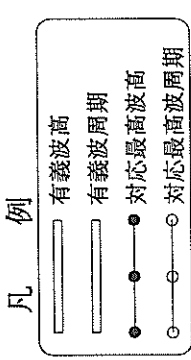 凡例
有義波高
有義波周期
対応最高波高
対応最高波周期